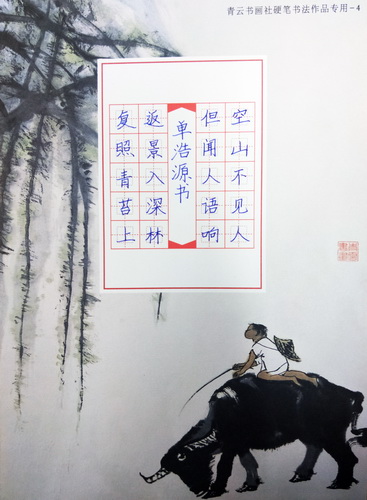 青云书画社硬笔书法作品专用-4
空山不见人
但闻人语响
单浩源书
返景入深林
复照青苔上